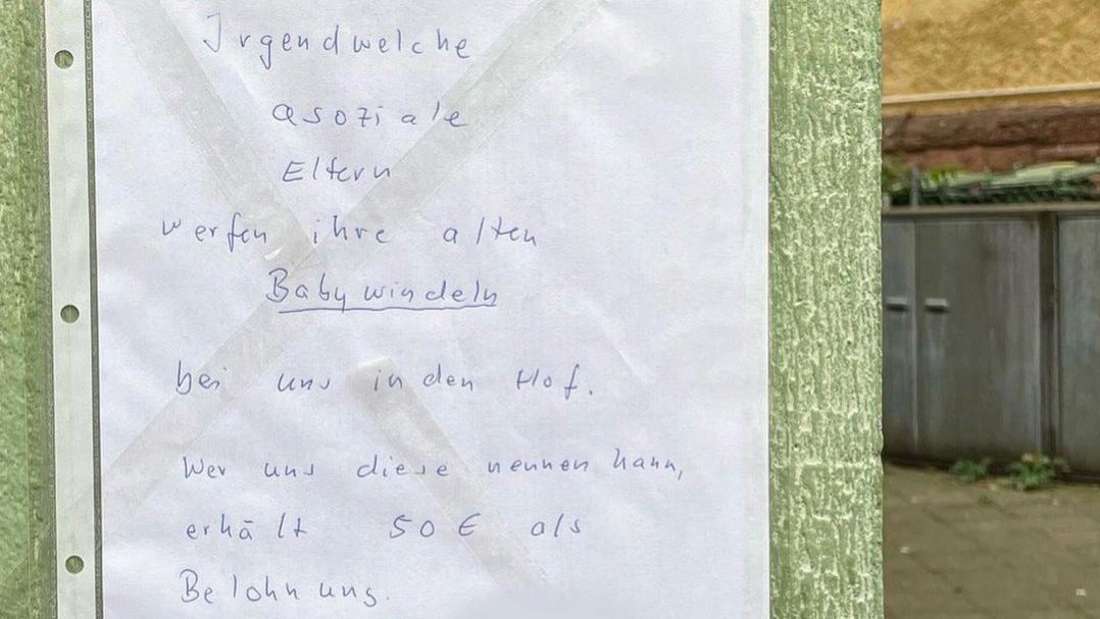 Irgendwelche
asoziale
Eltern
werfen ihre alten
Babywindeln
bei uns in den Hof.
Wer uns diese nennen kann,
erhält 50 € als
Belohnung.